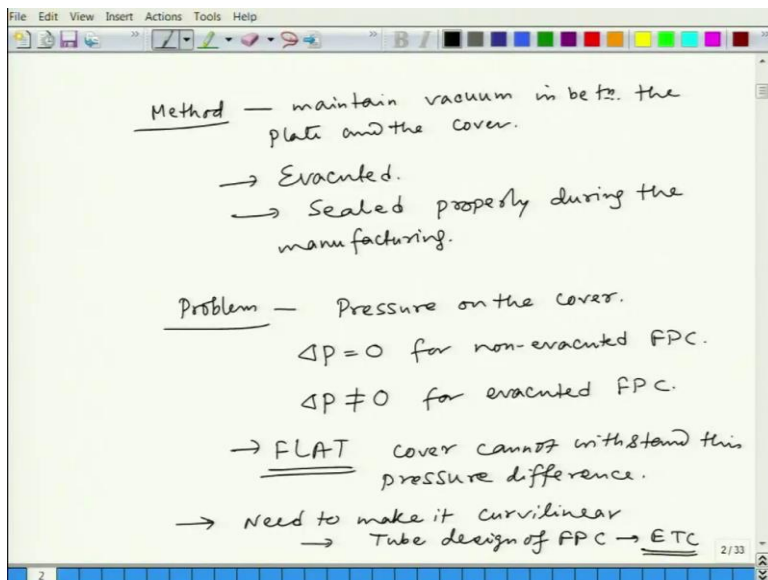 File Edit View Insert Actions Tools Help
Method — maintain vacuum in betn. the
plate and the cover.
→ Evacuted.
→ Sealed properly during the
manufacturing.
Problem — Pressure on the cover.
ΔP = 0 for non-evacuted FPC.
ΔP ≠ 0 for evacuted FPC.
→ FLAT cover cannot withstand this
pressure difference.
→ Need to make it curvilinear
→ Tube design of FPC → ETC
2/33
2